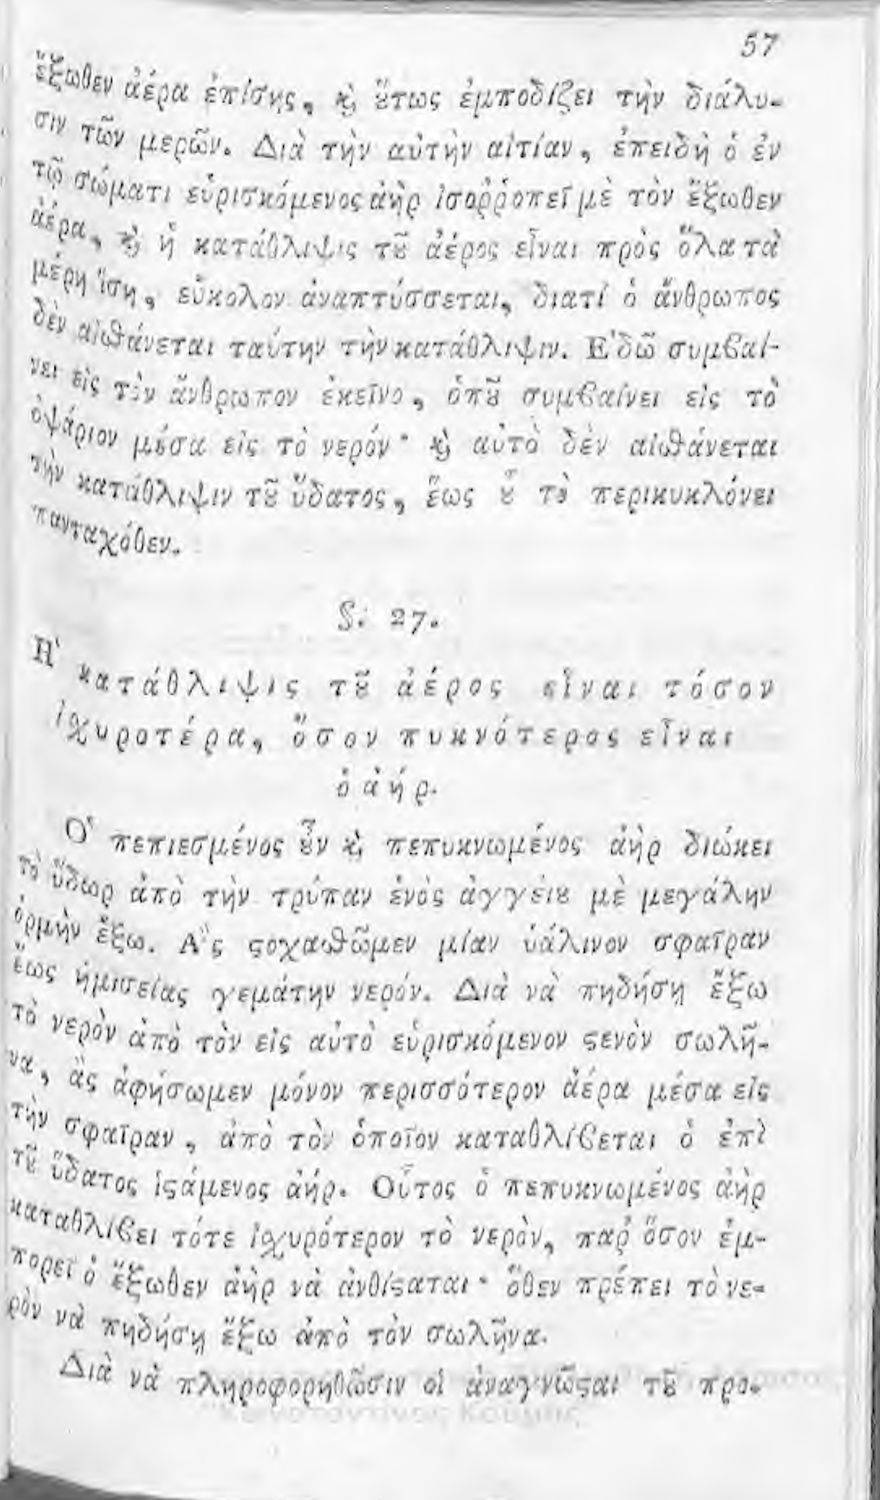 57
ἔξωθεν ἀέρα ἐπίσης, ϗ̀ ȣ̔́τως ἐμποδίζει τὴν διάλυ-
σιν τῶν μερῶν. Διὰ τὴν αὐτὴν αἰτίαν, ἐπειδὴ ὁ ἐν
τῷ σώματι εὑρισκόμενος ἀὴρ ἰσοῤῥοπεῖ μὲ τὸν ἔξωθεν
ἀέρα, ϗ̀ ἡ κατάθλιψις τȣ͂ ἀέρος εἶναι πρὸς ὅλα τὰ
μέρη ἴση, εὔκολον ἀναπτύσσεται, διατί ὁ ἄνθρωπος
δὲν αἰσθάνεται ταύτην τὴν κατάθλιψιν. Ἐδῶ συμβαί-
νει εἰς τὸν ἄνθρωπον ἐκεῖνο, ὁπȣ͂ συμβαίνει εἰς τὸ
ὀψάριον μέσα εἰς τὸ νερόν· ϗ̀ αὐτὸ δὲν αἰσθάνεται
τὴν κατάθλιψιν τȣ͂ ὕδατος, ἕως ȣ̔͂ τὸ περικυκλόνει
πανταχόθεν.
§. 27.
Ἡ κατάθλιψις τȣ͂ ἀέρος εἶναι τόσον
ἰχυροτέρα, ὅσον πυκνότερος εἶναι
ὁ ἀήρ.
Ὁ πεπιεσμένος ȣ̓͂ν ϗ̀ πεπυκνωμένος ἀὴρ διώκει
τὸ ὕδωρ ἀπὸ τὴν τρύπαν ἑνὸς ἀγγείȣ μὲ μεγάλην
ὁρμὴν ἔξω. Ἂς ϛοχασθῶμεν μίαν ὑάλινον σφαῖραν
ἕως ἡμισείας γεμάτην νερόν. Διὰ νὰ πηδήσῃ ἔξω
τὸ νερὸν ἀπὸ τὸν εἰς αὐτὸ εὑρισκόμενον ϛενὸν σωλῆ-
να, ἂς ἀφήσωμεν μόνον περισσότερον ἀέρα μέσα εἰς
τὴν σφαῖραν, ἀπὸ τὸν ὁποῖον καταθλίβεται ὁ ἐπὶ
τȣ͂ ὕδατος ἱϛάμενος ἀήρ. Οὗτος ὁ πεπυκνωμένος ἀὴρ
καταθλίβει τότε ἰχυρότερον τὸ νερὸν, παρ' ὅσον ἐμ-
πορεῖ ὁ ἔξωθεν ἀὴρ νὰ ἀνθίϛαται· ὅθεν πρέπει τὸ νε-
ρὸν νὰ πηδήσῃ ἔξω ἀπὸ τὸν σωλῆνα.
Διὰ νὰ πληροφορηθῶσιν οἱ ἀναγνῶϛαι τȣ͂ προ-